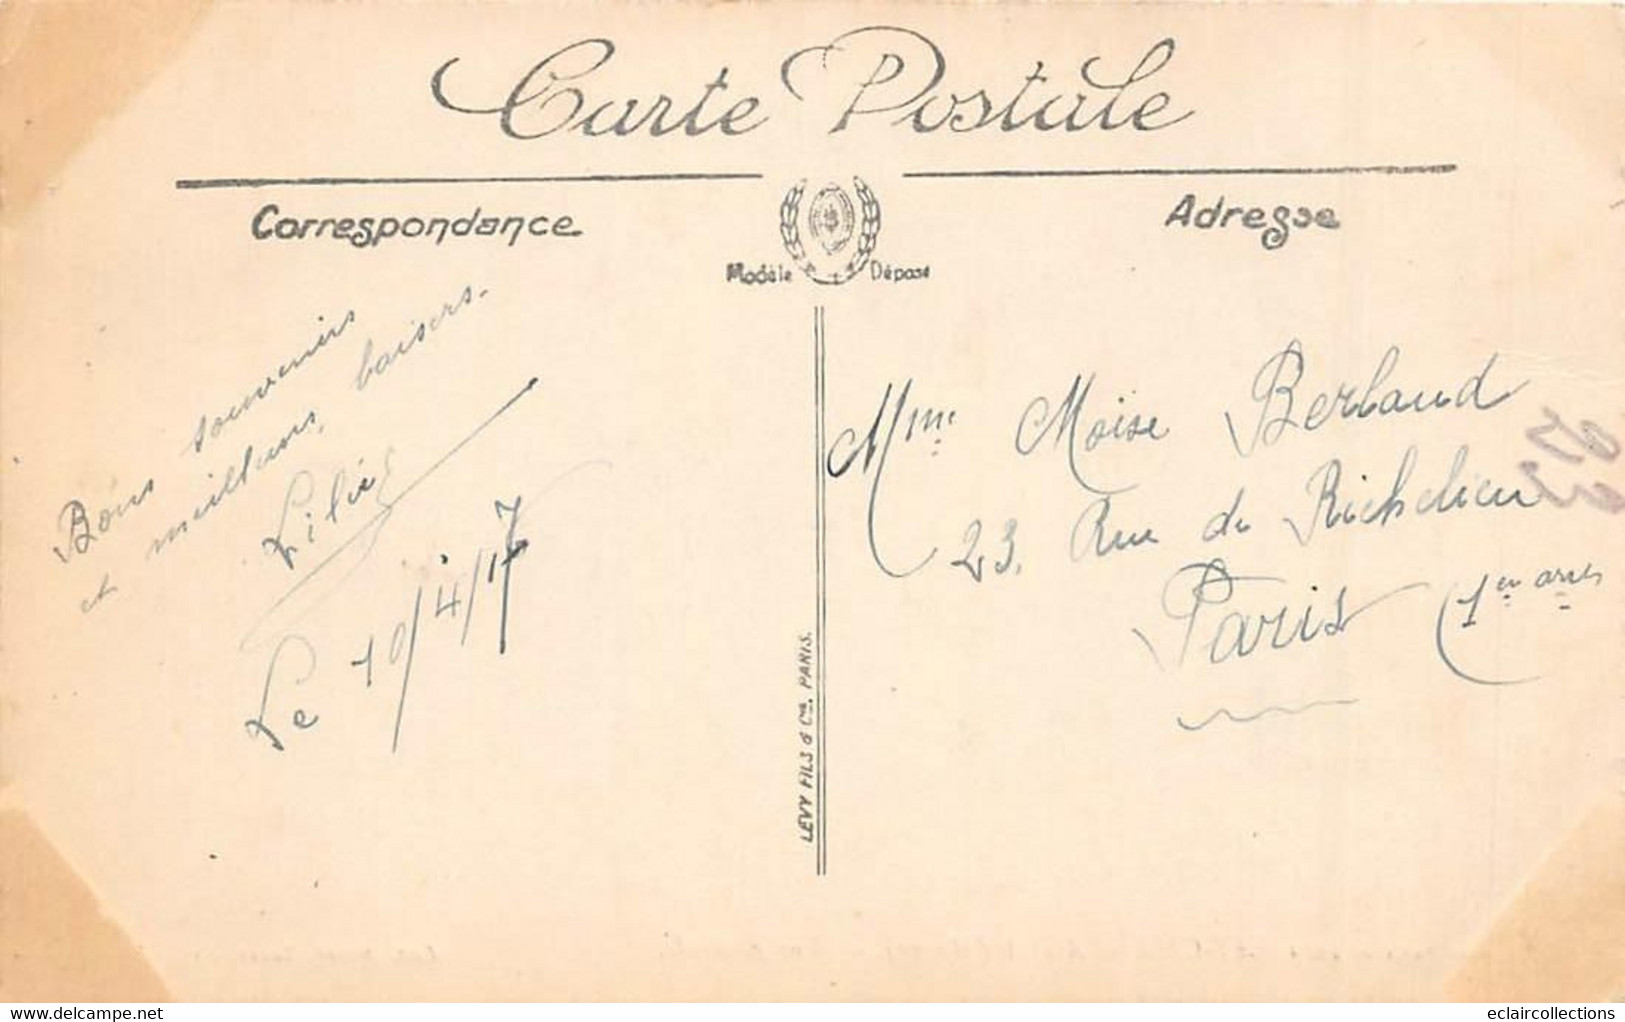 Carte Postale
Correspondance
Adresse
Modèle Déposé
Bons souvenirs
et meilleurs baisers.
Le 10/4/17
LEVY FILS & Cie. PARIS.
Mme Moïse Berland
23, Rue de Richelieu
Paris (1er arr
www.delcampe.net
eclaircollections